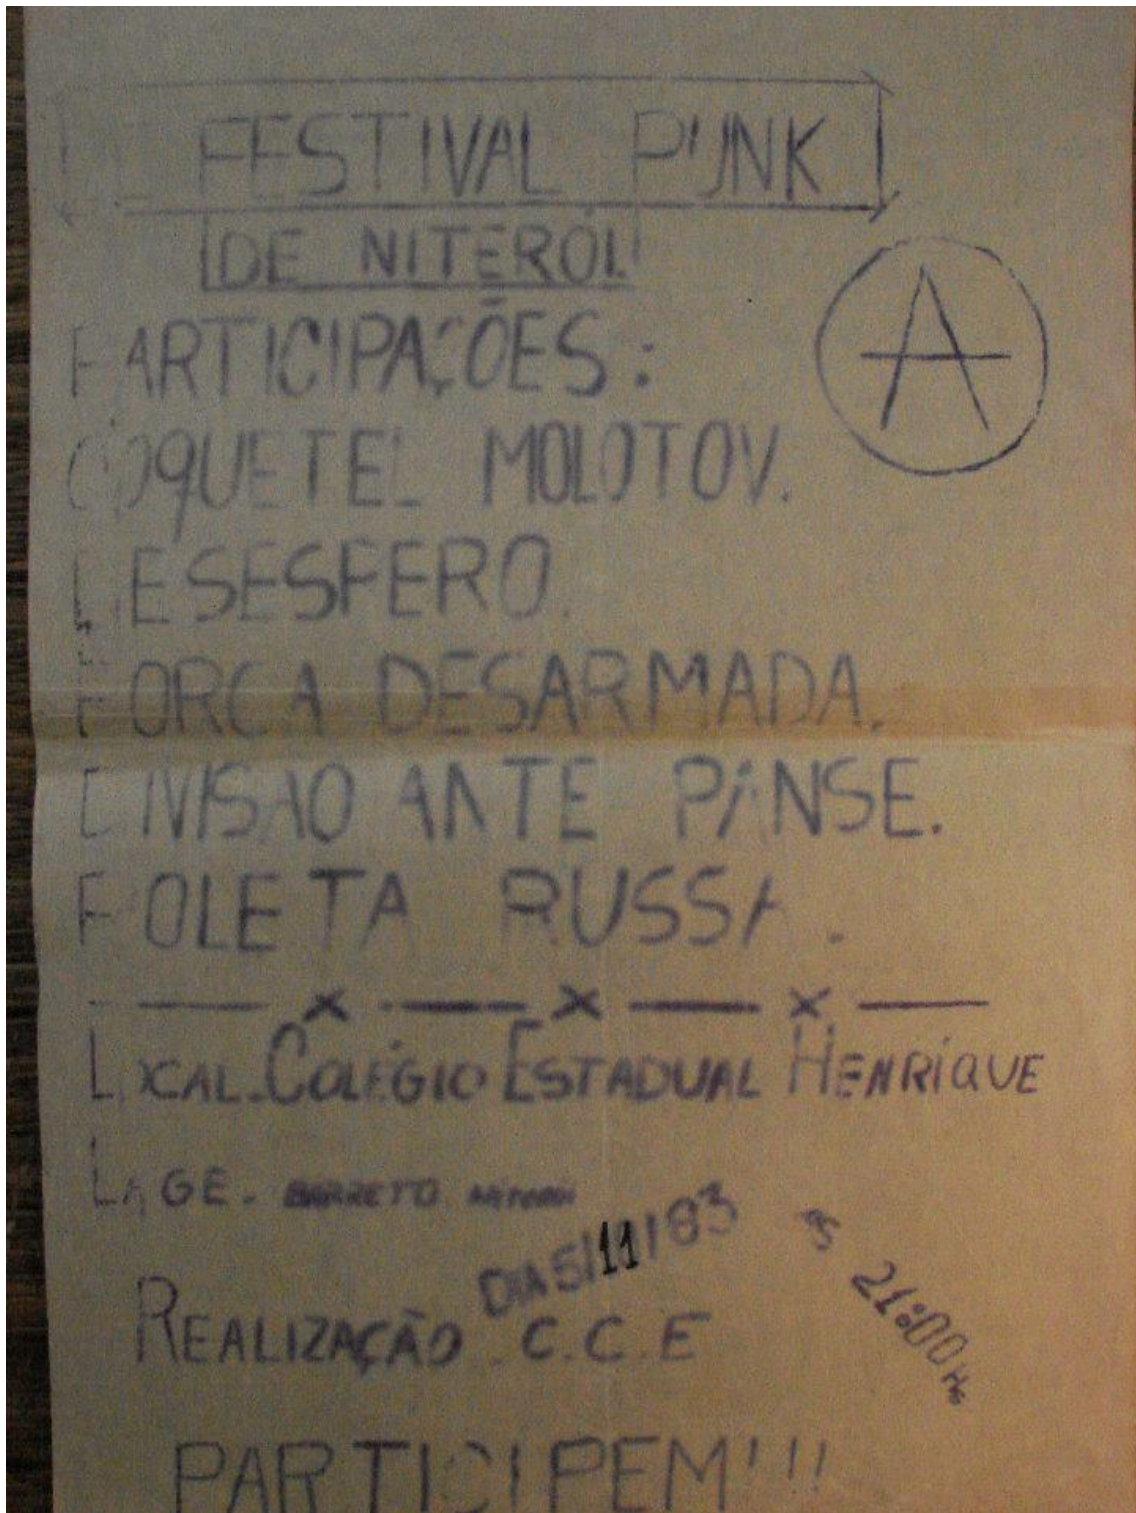 FESTIVAL PUNK
DE NITERÓI
A
PARTICIPAÇÕES:
COQUETEL MOLOTOV.
DESESPERO.
FORÇA DESARMADA.
DIVISÃO ANTE PANSE.
ROLETA RUSSA.
LOCAL-COLÉGIO ESTADUAL HENRIQUE
LAGE. BARRETO NITEROI
DIA 5/11/83
ÀS 21:00 Hs
REALIZAÇÃO C.C.E
PARTICIPEM!!!